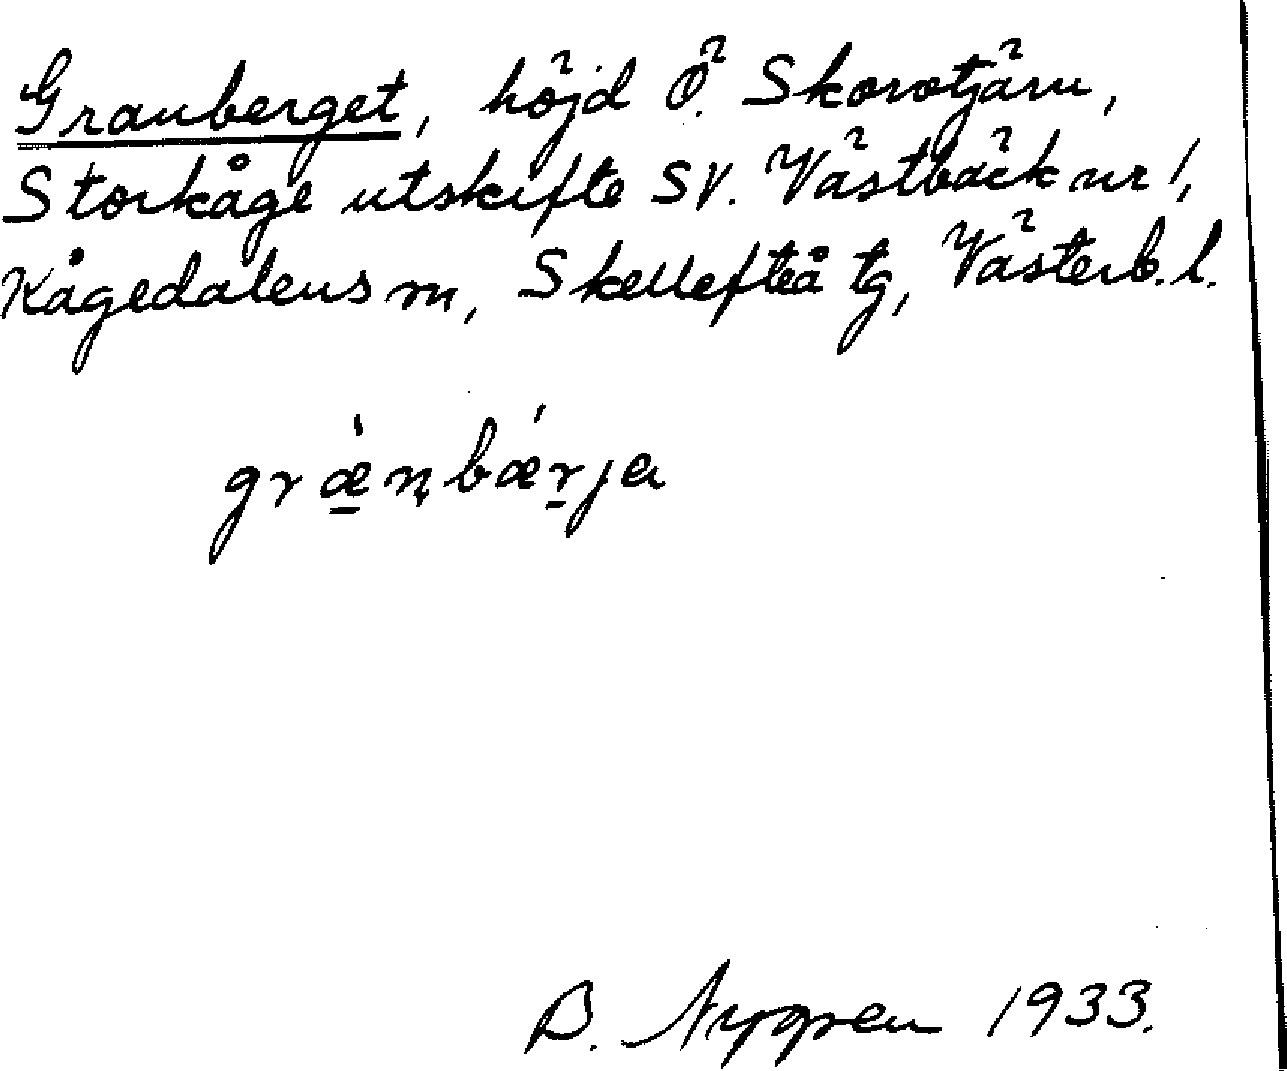 Granberget, höjd Ö. Skorotjärn,
Storkåge utskifte SV. Västbäck nr 1,
Kågedalens m, Skellefteå tg, Västerb. l.
græ̀n̥bǽrja
B. Nygren 1933.